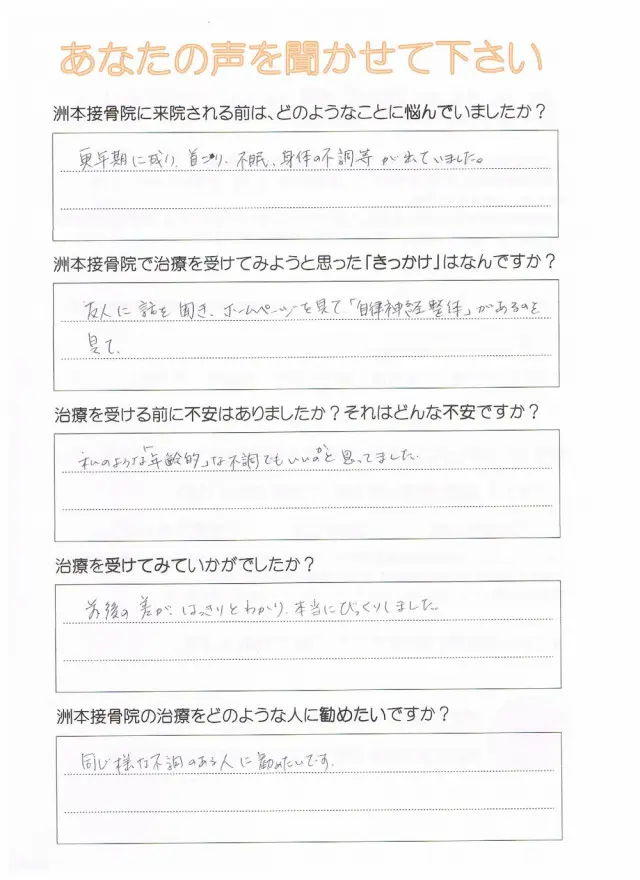 あなたの声を聞かせて下さい
洲本接骨院に来院される前は、どのようなことに悩んでいましたか？
更年期に成り、首こり、不眠、身体の不調等が出ていました。
洲本接骨院で治療を受けてみようと思った「きっかけ」はなんですか？
友人に話を聞き、ホームページを見て「自律神経整体」があるのを
見て、
治療を受ける前に不安はありましたか？それはどんな不安ですか？
私のような「年齢的」な不調でもいいのかと思ってました。
治療を受けてみていかがでしたか？
前後の差が、はっきりとわかり、本当にびっくりしました。
洲本接骨院の治療をどのような人に勧めたいですか？
同じ様な不調のある人に勧めたいです。